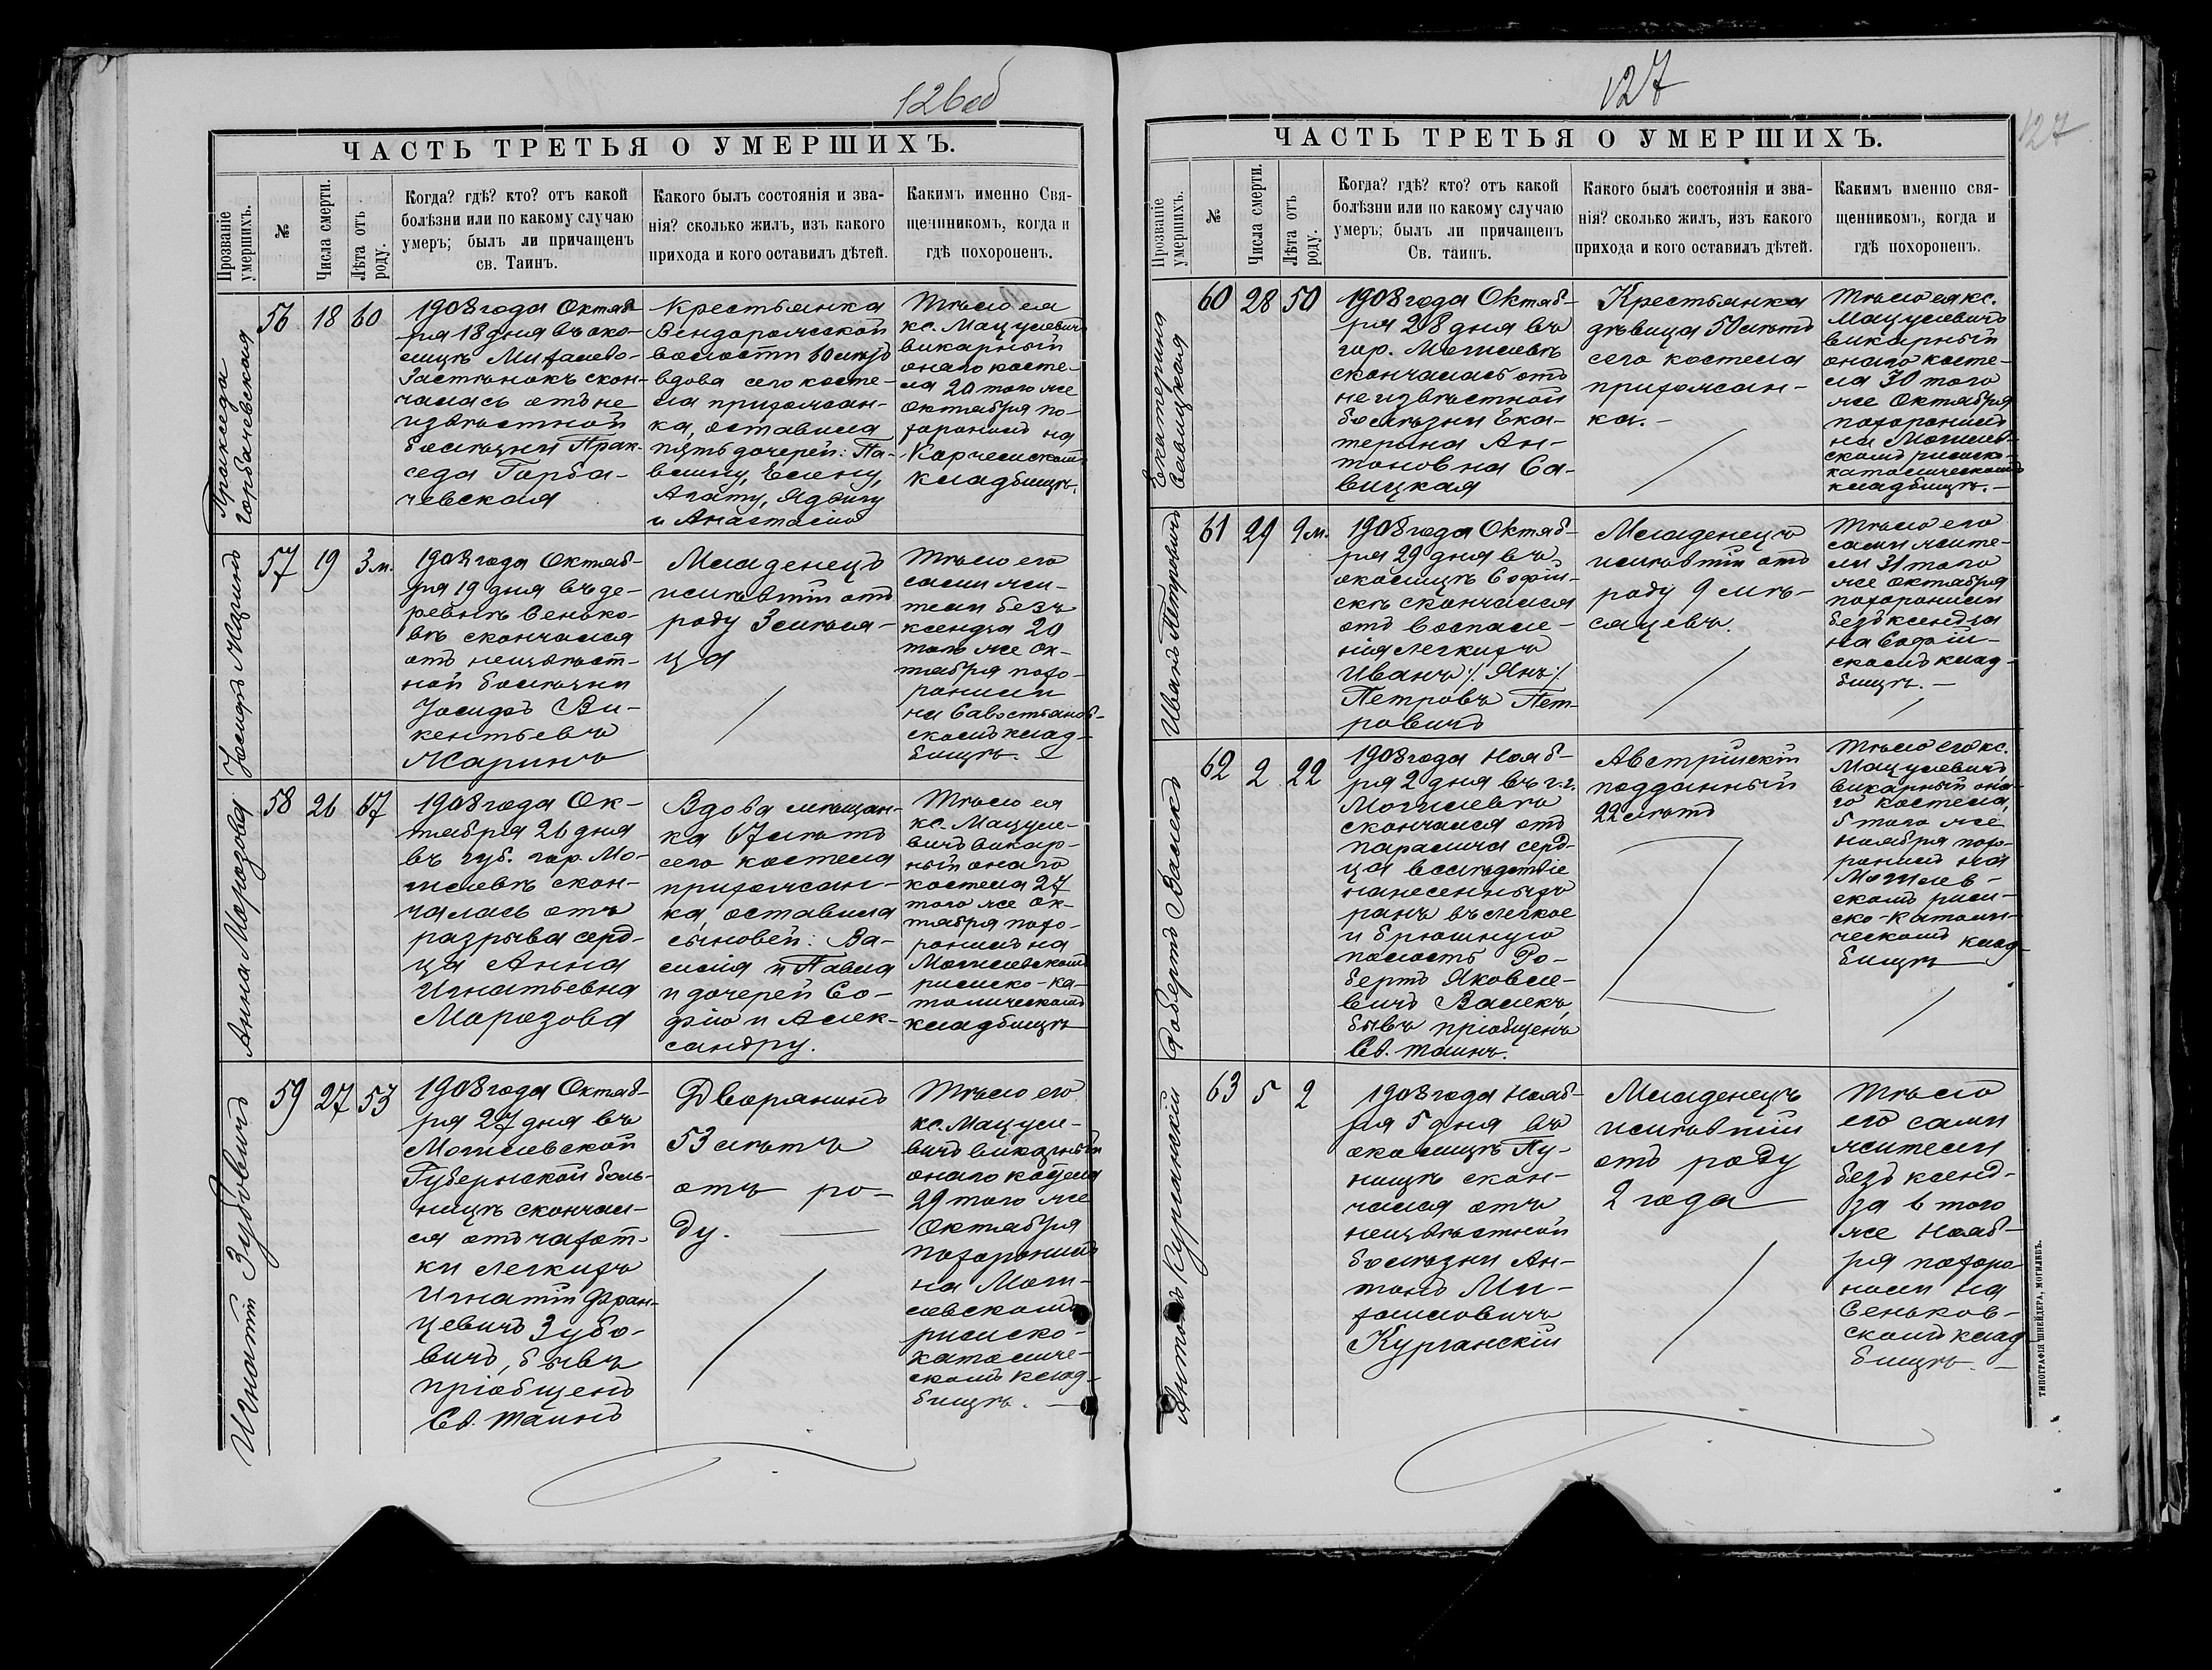 126 об
ЧАСТЬ ТРЕТЬЯ О УМЕРШИХЪ.
Прозваніе умершихъ.
№
Числа смерти.
Лѣта отъ роду.
Когда? гдѣ? кто? отъ какой
болѣзни или по какому случаю
умеръ; былъ ли причащенъ
св. Таинъ.
Какого былъ состоянія и зва-
нія? сколько жилъ, изъ какого
прихода и кого оставилъ дѣтей.
Каким​ъ именно Свя-
щенникомъ, когда и
гдѣ похороненъ.
Праксeда
Горбачевская
56
18
60
1908 года Октяб-
ря 18 дня въ око-
лицѣ Михалево-
Застѣнокъ скон-
чалась отъ не
извѣстной
болѣзни Прак-
седа Горба-
чевская
Крестьянка
Вендорожской
волости 60 лѣтъ
вдова сего косте-
ла прихожан-
ка, оставила
пять дочерей: Па-
влину, Елену,
Агату, Ядвигу
и Анастасію
Тѣло ея
кс. Мацулевичъ
викарный
онаго косте-
ла 20 того же
Октября по-
хоронилъ на
Корчемскомъ
кладбищѣ.
Іосифъ Жаринъ
57
19
3 м.
1908 года Октяб-
ря 19 дня въ де-
ревнѣ Сенько-
вѣ скончался
отъ неизвѣст-
ной болѣзни
Іосифъ Ви-
кентьевъ
Жаринъ
Младенецъ
имѣвшій отъ
роду 3 мѣся-
ца
Тѣло его
сами жи-
тели безъ
ксендза 20
того же Ок-
тября похо-
ронили
на Савостьянов-
скомъ клад-
бищѣ.
Анна Морозова
58
26
67
1908 года Ок-
тября 26 дня
въ губ. гор. Мо-
гилевѣ скон-
чалась отъ
разрыва серд-
ца Анна
Игнатьевна
Морозова
Вдова мѣщан-
ка 67 лѣтъ
сего костела
прихожан-
ка, оставила
сыновей: Ва-
силія и Павла
и дочерей Со-
фію и Алек-
сандру.
Тѣло ея
кс. Мацуле-
вичъ викар-
ный онаго
костела 27
того же Ок-
тября похо-
ронилъ на
Могилевскомъ
римско-ка-
толическомъ
кладбищѣ
Игнатій Зубовичъ
59
27
53
1908 года Октяб-
ря 27 дня въ
Могилевской
Губернской боль-
ницѣ скончал-
ся отъ чахот-
ки легкихъ
Игнатій Фран-
цевичъ Зубо-
вичъ, бывъ
пріобщенъ
Св. Таинъ
Дворянинъ
53 лѣтъ
отъ ро-
ду.
Тѣло его
кс. Мацуле-
вичъ викарный
онаго костела
29 того же
Октября
похоронилъ
на Моги-
левскомъ
римско-
католиче-
скомъ клад-
бищѣ.
127
127
ЧАСТЬ ТРЕТЬЯ О УМЕРШИХЪ.
Прозваніе умершихъ.
№
Числа смерти.
Лѣта отъ роду.
Когда? гдѣ? кто? отъ какой
болѣзни или по какому случаю
умеръ; былъ ли причащенъ
Св. таинъ.
Какого былъ состоянія и зва-
нія? сколько жилъ, изъ какого
прихода и кого оставилъ дѣтей.
Какимъ именно свя-
щенникомъ, когда и
гдѣ похороненъ.
Екатерина
Савицкая
60
28
50
1908 года Октяб-
ря 28 дня въ
гор. Могилевѣ
скончалась отъ
неизвѣстной
болѣзни Ека-
терина Ан-
тоновна Са-
вицкая
Крестьянка
дѣвица 50 лѣтъ
сего костела
прихожан-
ка.-
Тѣло ея кс.
Мацулевичъ
викарный
онаго косте-
ла 30 того
же Октября
похоронилъ
на Могилев-
скомъ римско-
католическомъ
кладбищѣ.-
Иванъ Петровичъ
61
29
9 м.
1908 года Октяб-
ря 29 дня въ
околицѣ Софій-
скѣ скончался
отъ воспале-
нія легкихъ
Иванъ /: Янъ :/
Петровъ Пет-
ровичъ
Младенецъ
имѣвшій отъ
роду 9 мѣ-
сяцевъ.
Тѣло его
сами жите-
ли 31 того
же Октября
похоронили
безъ ксендза
на Софій-
скомъ клад-
бищѣ.-
Робертъ Валекъ
62
2
22
1908 года Нояб-
ря 2 дня въ г. г.
Могилевѣ
скончался отъ
паралича серд-
ца вслѣдствіе
нанесенныхъ
ранъ въ легкое
и брюшную
полость Ро-
бертъ Яковле-
вичъ Валекъ,
бывъ пріобщенъ
Св. таинъ.
Австрійскій
подданный
22 лѣтъ
Тѣло его кс.
Мацулевичъ,
викарный она-
го костела,
5 того же
Ноября похо-
ронилъ на
Могилев-
скомъ рим-
ско-католи-
ческомъ клад-
бищѣ
Антонъ Курганскій
63
5
2
1908 года Нояб-
ря 5 дня въ
околицѣ Пу-
ницѣ скон-
чался отъ
неизвѣстной
болѣзни Ан-
тонъ Ми-
хайловичъ
Курганскій
Младенецъ
имѣвшій
отъ роду
2 года
Тѣло
его сами
жители
безъ ксенд-
за 6 того
же Нояб-
ря похоро-
нили на
Сеньков-
скомъ клад
бищѣ.-
ТИПОГРАФІЯ ШНЕЙДЕРА, МОГИЛЕВЪ.